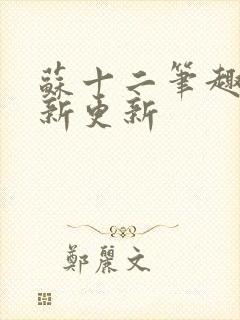 蘇十二筆趣
新更新
鄭麗文